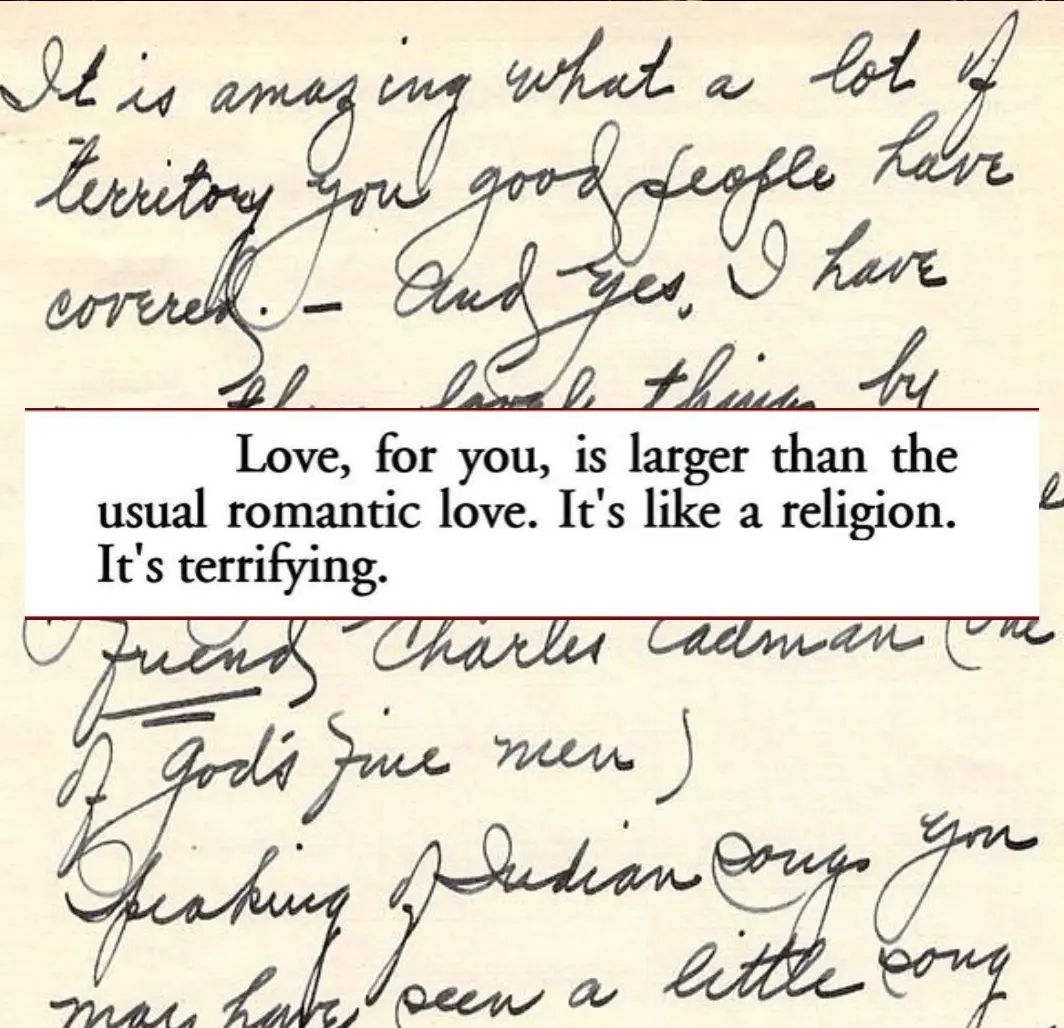 It is amazing what a lot of
territory you good people have
covered. – And yes, I have
things by
Love, for you, is larger than the
usual romantic love. It's like a religion.
It's terrifying.
friend Charles Cadman (One
of God's fine men)
Speaking of Indian Songs you
may have seen a little song